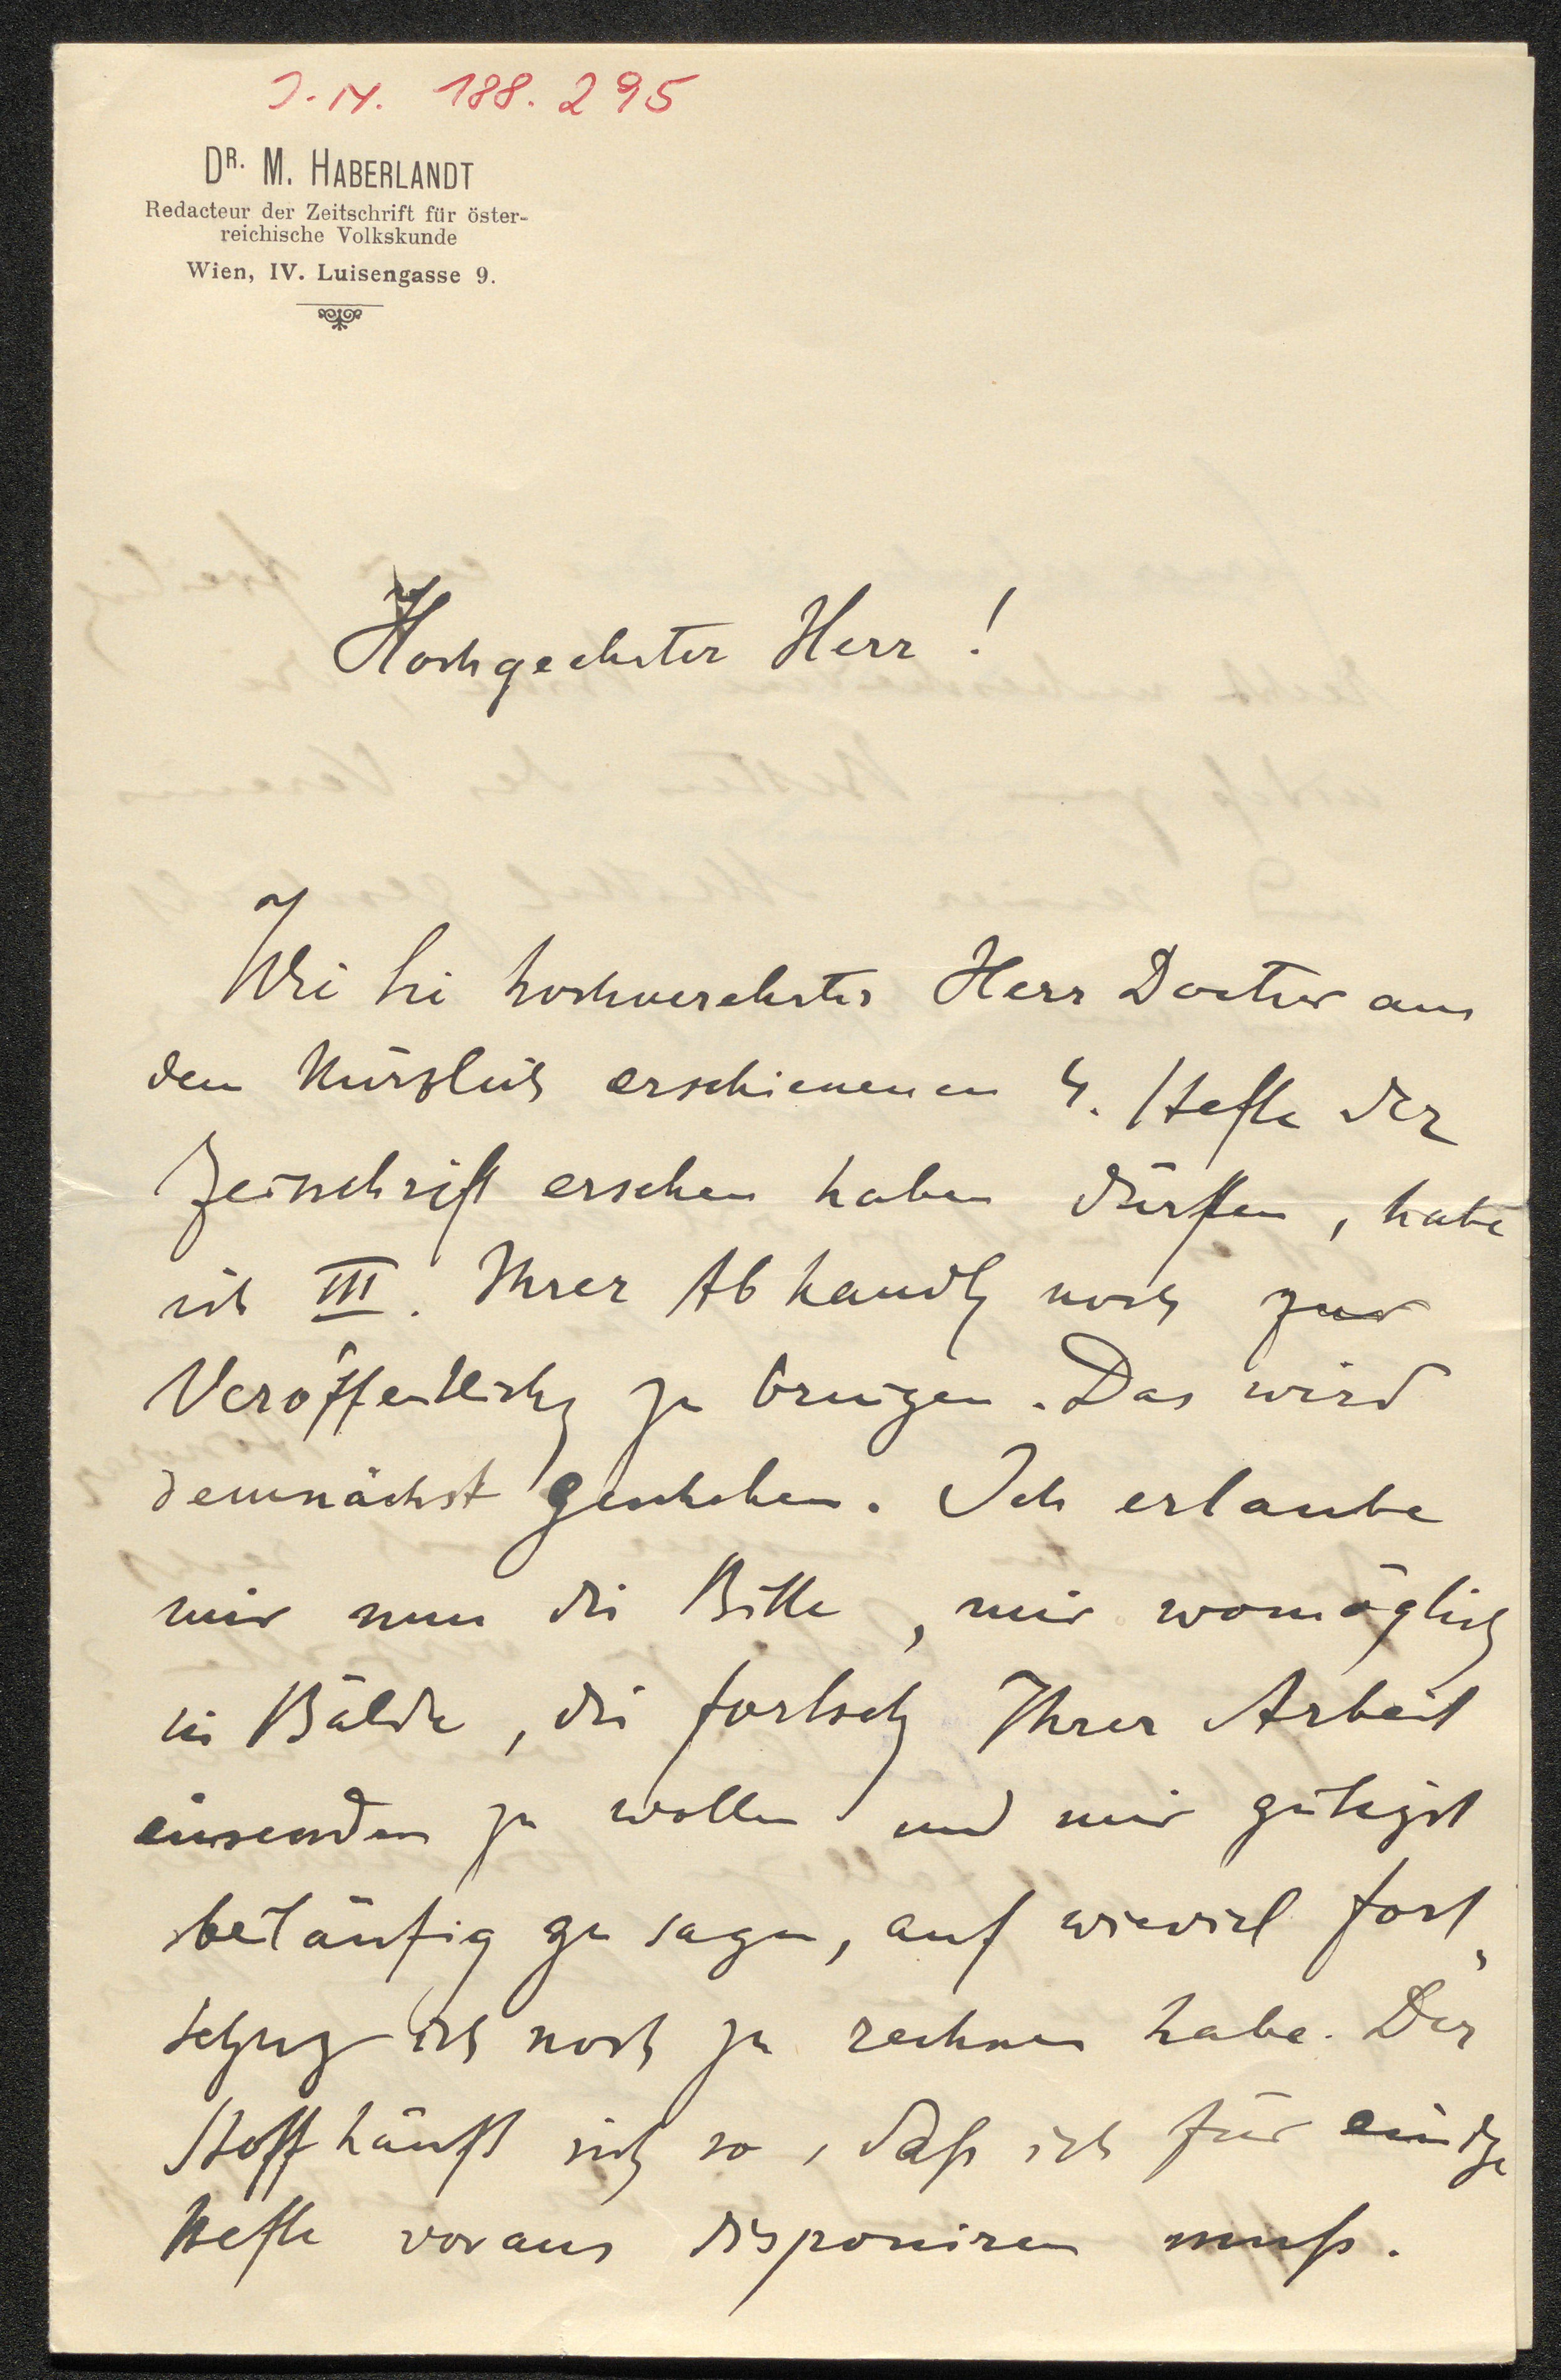 J. N. 188.295
DR. M. HABERLANDT
Redacteur der Zeitschrift für öster-
reichische Volkskunde
Wien, IV. Luisengasse 9.
Hochgeehrter Herr!
Wie Sie hochverehrter Herr Doctor aus
dem kürzlich erschienenen 4. Hefte der
Zeitschrift ersehen haben dürften, habe
ich III. Ihrer Abhandlg noch zur
Veröffentlichg zu bringen. Das wird
demnächst geschehen. Ich erlaube
mir nun die Bitte, mir womöglich
in Bälde, die Fortsetzg Ihrer Arbeit
einsenden zu wollen und mir gütigst
beiläufig zu sagen, auf wieviel Fort„
setzung ich noch zu rechnen habe. Der
Stoff häuft sich so, daß ich für einige
Hefte voraus disponiren muß.